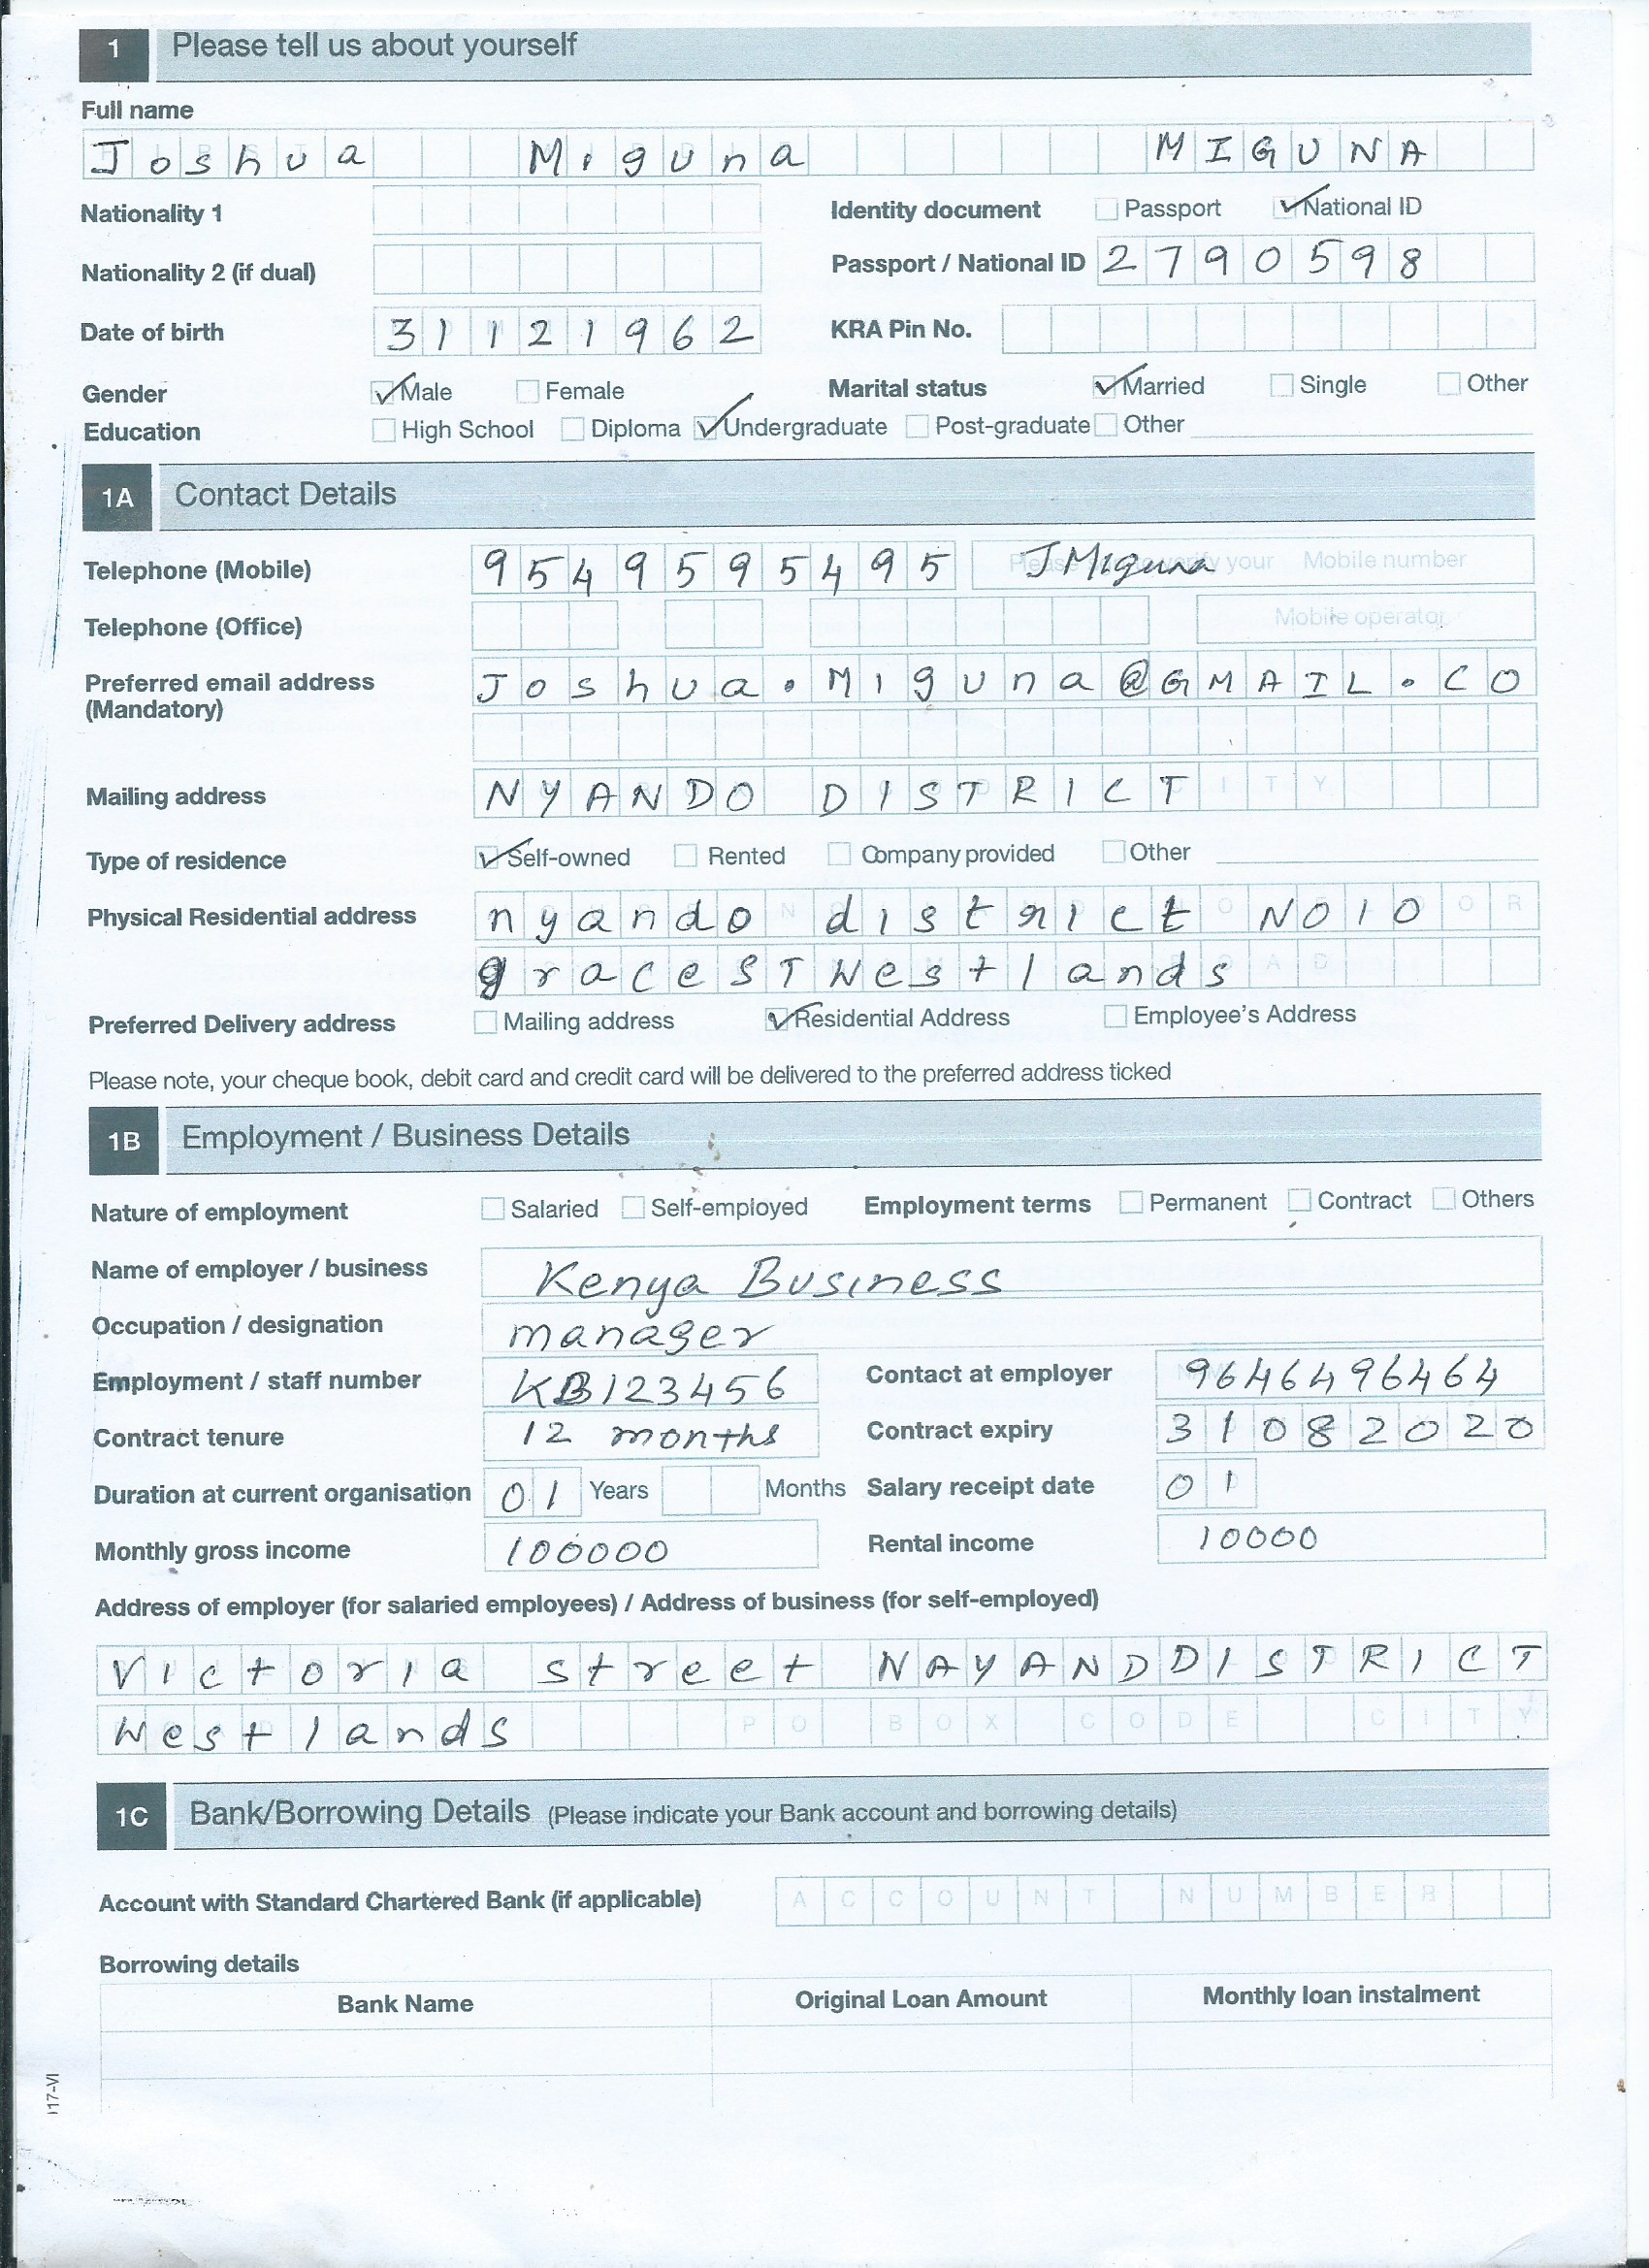 1 Please tell us about yourself
Full name
Joshua Miguna MIGUNA
Nationality 1
Identity document Passport National ID
Nationality 2 (if dual)
Passport / National ID 2790598
Date of birth 31121962
KRA Pin No.
Gender Male Female
Marital status Married Single Other
Education High School Diploma Undergraduate Post-graduate Other
1A Contact Details
Telephone (Mobile) 9549595495 JMiguna Mobile number
Telephone (Office) Mobile operator
Preferred email address Joshua.Miguna@GMAIL.CO
(Mandatory)
Mailing address NYANDO DISTRICT
Type of residence Self-owned Rented Company provided Other
Physical Residential address nyando district NO10
graceSTWestlands
Preferred Delivery address Mailing address Residential Address Employee's Address
Please note, your cheque book, debit card and credit card will be delivered to the preferred address ticked
1B Employment / Business Details
Nature of employment Salaried Self-employed Employment terms Permanent Contract Others
Name of employer / business Kenya Business
Occupation / designation manager
Employment / staff number KB123456 Contact at employer 9646496464
Contract tenure 12 months Contract expiry 31082020
Duration at current organisation 01 Years Months Salary receipt date 01
Monthly gross income 100000 Rental income 10000
Address of employer (for salaried employees) / Address of business (for self-employed)
Victoria street NAYANDDISTRICT
Westlands PO BOX CODE CITY
1C Bank/Borrowing Details (Please indicate your Bank account and borrowing details)
Account with Standard Chartered Bank (if applicable) ACCOUNT NUMBER
Borrowing details
Bank Name Original Loan Amount Monthly loan instalment